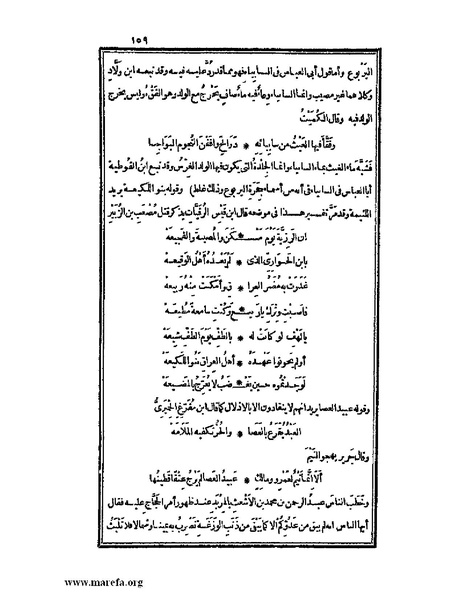 ١٥٩
اليَرْبوع وأما قول أبى العباس فى السابياء فهو مما قد رُدَّ عليه فيه وقد تبعه ابن ولَّاد
وكلاهما غير مصيب وانما السابياء وعاء فيه ماء صافٍ يَخْرج مع الولد وهو الفَقْءُ وليس يخرج
الولد فيه وقال الكُمَيْت
وفَقَّأ فيها الغَيْثُ من سابيائه * دَوالحَ وافَقْنَ النُّجومَ البَواجِسا
فشبَّه ماء الغيث بماء السابياء وانما الجِلدة التى يكون فيها الولد الغِرْسُ وقد تبع ابنُ القوطية
أبا العباس فى السابياء فى انها من أسماء جِحَرة اليربوع وذلك غلط) وقوله بنو اللكيعة يريد
اللئيمة وقد مَرَّ تفسير هذا فى موضعه قال ابن قيْس الرُّقيَّات يذكر قتل مُصْعَب بن الزُّبَيْر
ان الرزِيَّة يَوْمَ مَسْكن والمصيبةَ والفجيعه
بابن الحَوارِىّ الذى * لَمْ يَعْدُهُ أهْلُ الوقيعه
غَدَرَتْ به مُضَرُ العرا * ق وأمْكَنَتْ مِنْهُ رَبيعه
فأصَبْتِ وِتْرَكِ يا رَبيـ * ـعَ وكُنْتِ سامعةً مُطيعَه
يا لَهْفَ لو كانت له * بالطَّفّ يَوْمَ الطَّفّ شيعَه
أو لَمْ يخونوا عَهْدَهُ * أهل العراق بَنُو اللكيعه
لَوَجَدْتُمُوه حين يَغْضَبُ لا يُعَرّج بالمَضيعه
وقوله عبيد العصا يريد انهم لا ينقادون الا بالاذلال كما قال ابن مُفَرّغ الحِمْيَرِىُّ
العَبْدُ يُقْرَعُ بالعَصا * والحُرُّ تَكْفيه المَلَامَه
وقال جَرير يهجو التَّيْم
ألا انَّما تَيْمٌ لعَمْرٍو ومالك * عبيدُ العصا لم يَرْجُ عِتْقًا قَطينُها
وخطب الناسَ عبدُ الرحمن بن محمد بن الأشْعَث بالمِرْبَد عند ظهور أمر الحَجَّاج عليه فقال
أيها الناس انه لم يبق من عَدُوّكُمْ الا كما يَبْقَى من ذَنَب الوَزَغَة تَضْرِبُ به يمينا وشمالا فلا تلْبَثُ
www.marefa.org